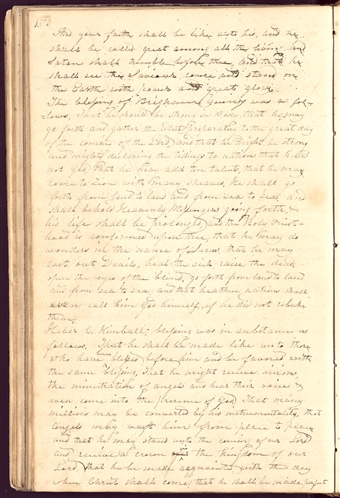 And your faith shall be like unto his, and he
shall be called great among all the living and
Satan shall tremble before thee, and that he
shall see the Saviour come and stand on
the Earth with power and great glory.
The blessing of Brigham Young was as fol-
lows, That he should be strong in body, that he may
go forth and gather the Elect preparatory to the great day
of the coming of the Lord and that he might be strong
and mighty declaring the tidings to nations that know
not God that he may add ten talents, that he may
come to Zion with many sheaves, He shall go
forth from land to land and from sea to sea and
shall behold Heavenly Messengers going forth &
his life shall be prolonged and the Holy Priest-
hood is conferred upon thee, that he may do
wonders in the name of Jesus, that he may
cast out Devils, heal the sick raise the dead
open the eyes of the blind, go forth from land to land
and from sea to sea, and that heathen nations shall
even call him God himself, if he did not rebuke
them,
Heber C. Kimball; blessing was in substance as
follows, That he shall be made like unto those
who have blessed before him and be favored with
the same blessing, That he might receive visions
the ministration of angels and hear their voice &
even come into the presence of God That many
millions may be converted by his instrumentality, that
angels may waft him from place to place
and that he may stand unto the coming of our Lord
and receive a crown in the kingdom of our
Lord, that he be made acquainted with the day
when Christ shall come, that he shall be made perfect